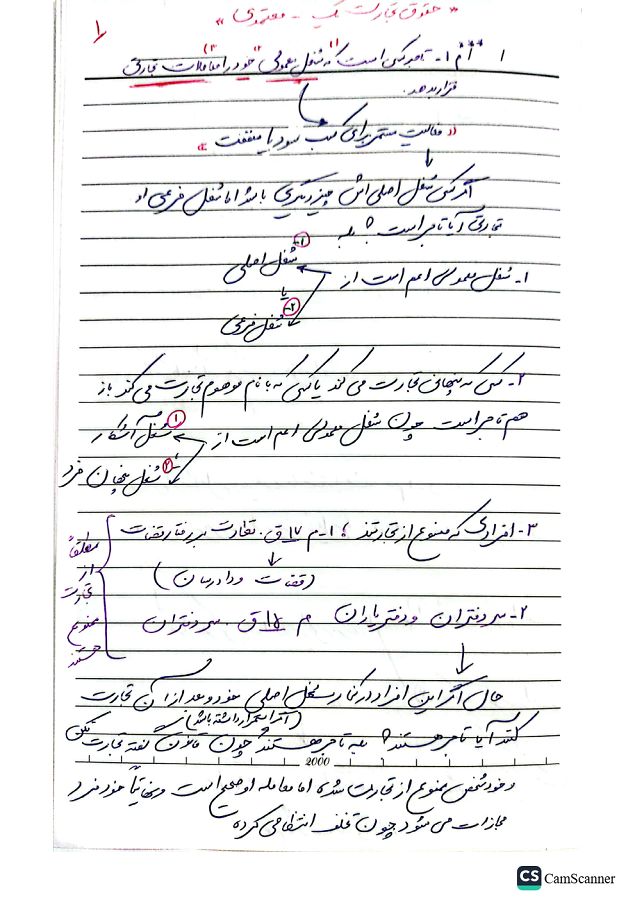 « حقوق تجارت یک - معتمدی »
1
1 *** م 1 - تاجر کسی است که شغل معمولی خود را معاملات تجارتی
(1) (2)
قرار بدهد.
« فعالیت مستمر برای کسب سود یا منفعت »
اگر کسی شغل اصلی اش چیز دیگری باشد اما شغل فرعی او
تجارتی آیا تاجر است؟ بله
1- شغل معمولی اعم است از
1- شغل اصلی
یا
2- شغل فرعی
2- کسی که پنهانی تجارت می کند یا کسی که با نام موهوم تجارت می کند باز
هم تاجر است چون شغل معمولی اعم است از
1 شغل آشکار
2 شغل پنهان فرد
3- افرادی که ممنوع از تجارتند؛ 1- م 17 ق. نظارت بر رفتار قضات
(قضات و دادرسان)
2- سردفتران و دفتریاران م 15 ق. سردفتران
مطلقاً
از
تجارت
ممنوع
هستند
حال اگر این افراد در کنار شغل اصلی خود و بعد از آن تجارت
(اگر استمرار داشته باشد)
کنند آیا تاجر هستند؟ بله تاجر هستند چون قانون گفته تجارت نکن
2000
و خود شخص ممنوع از تجارت شده اما معامله او صحیح است و نهایتاً خود فرد
مجازات می شود چون تخلف انتظامی کرده
CS CamScanner